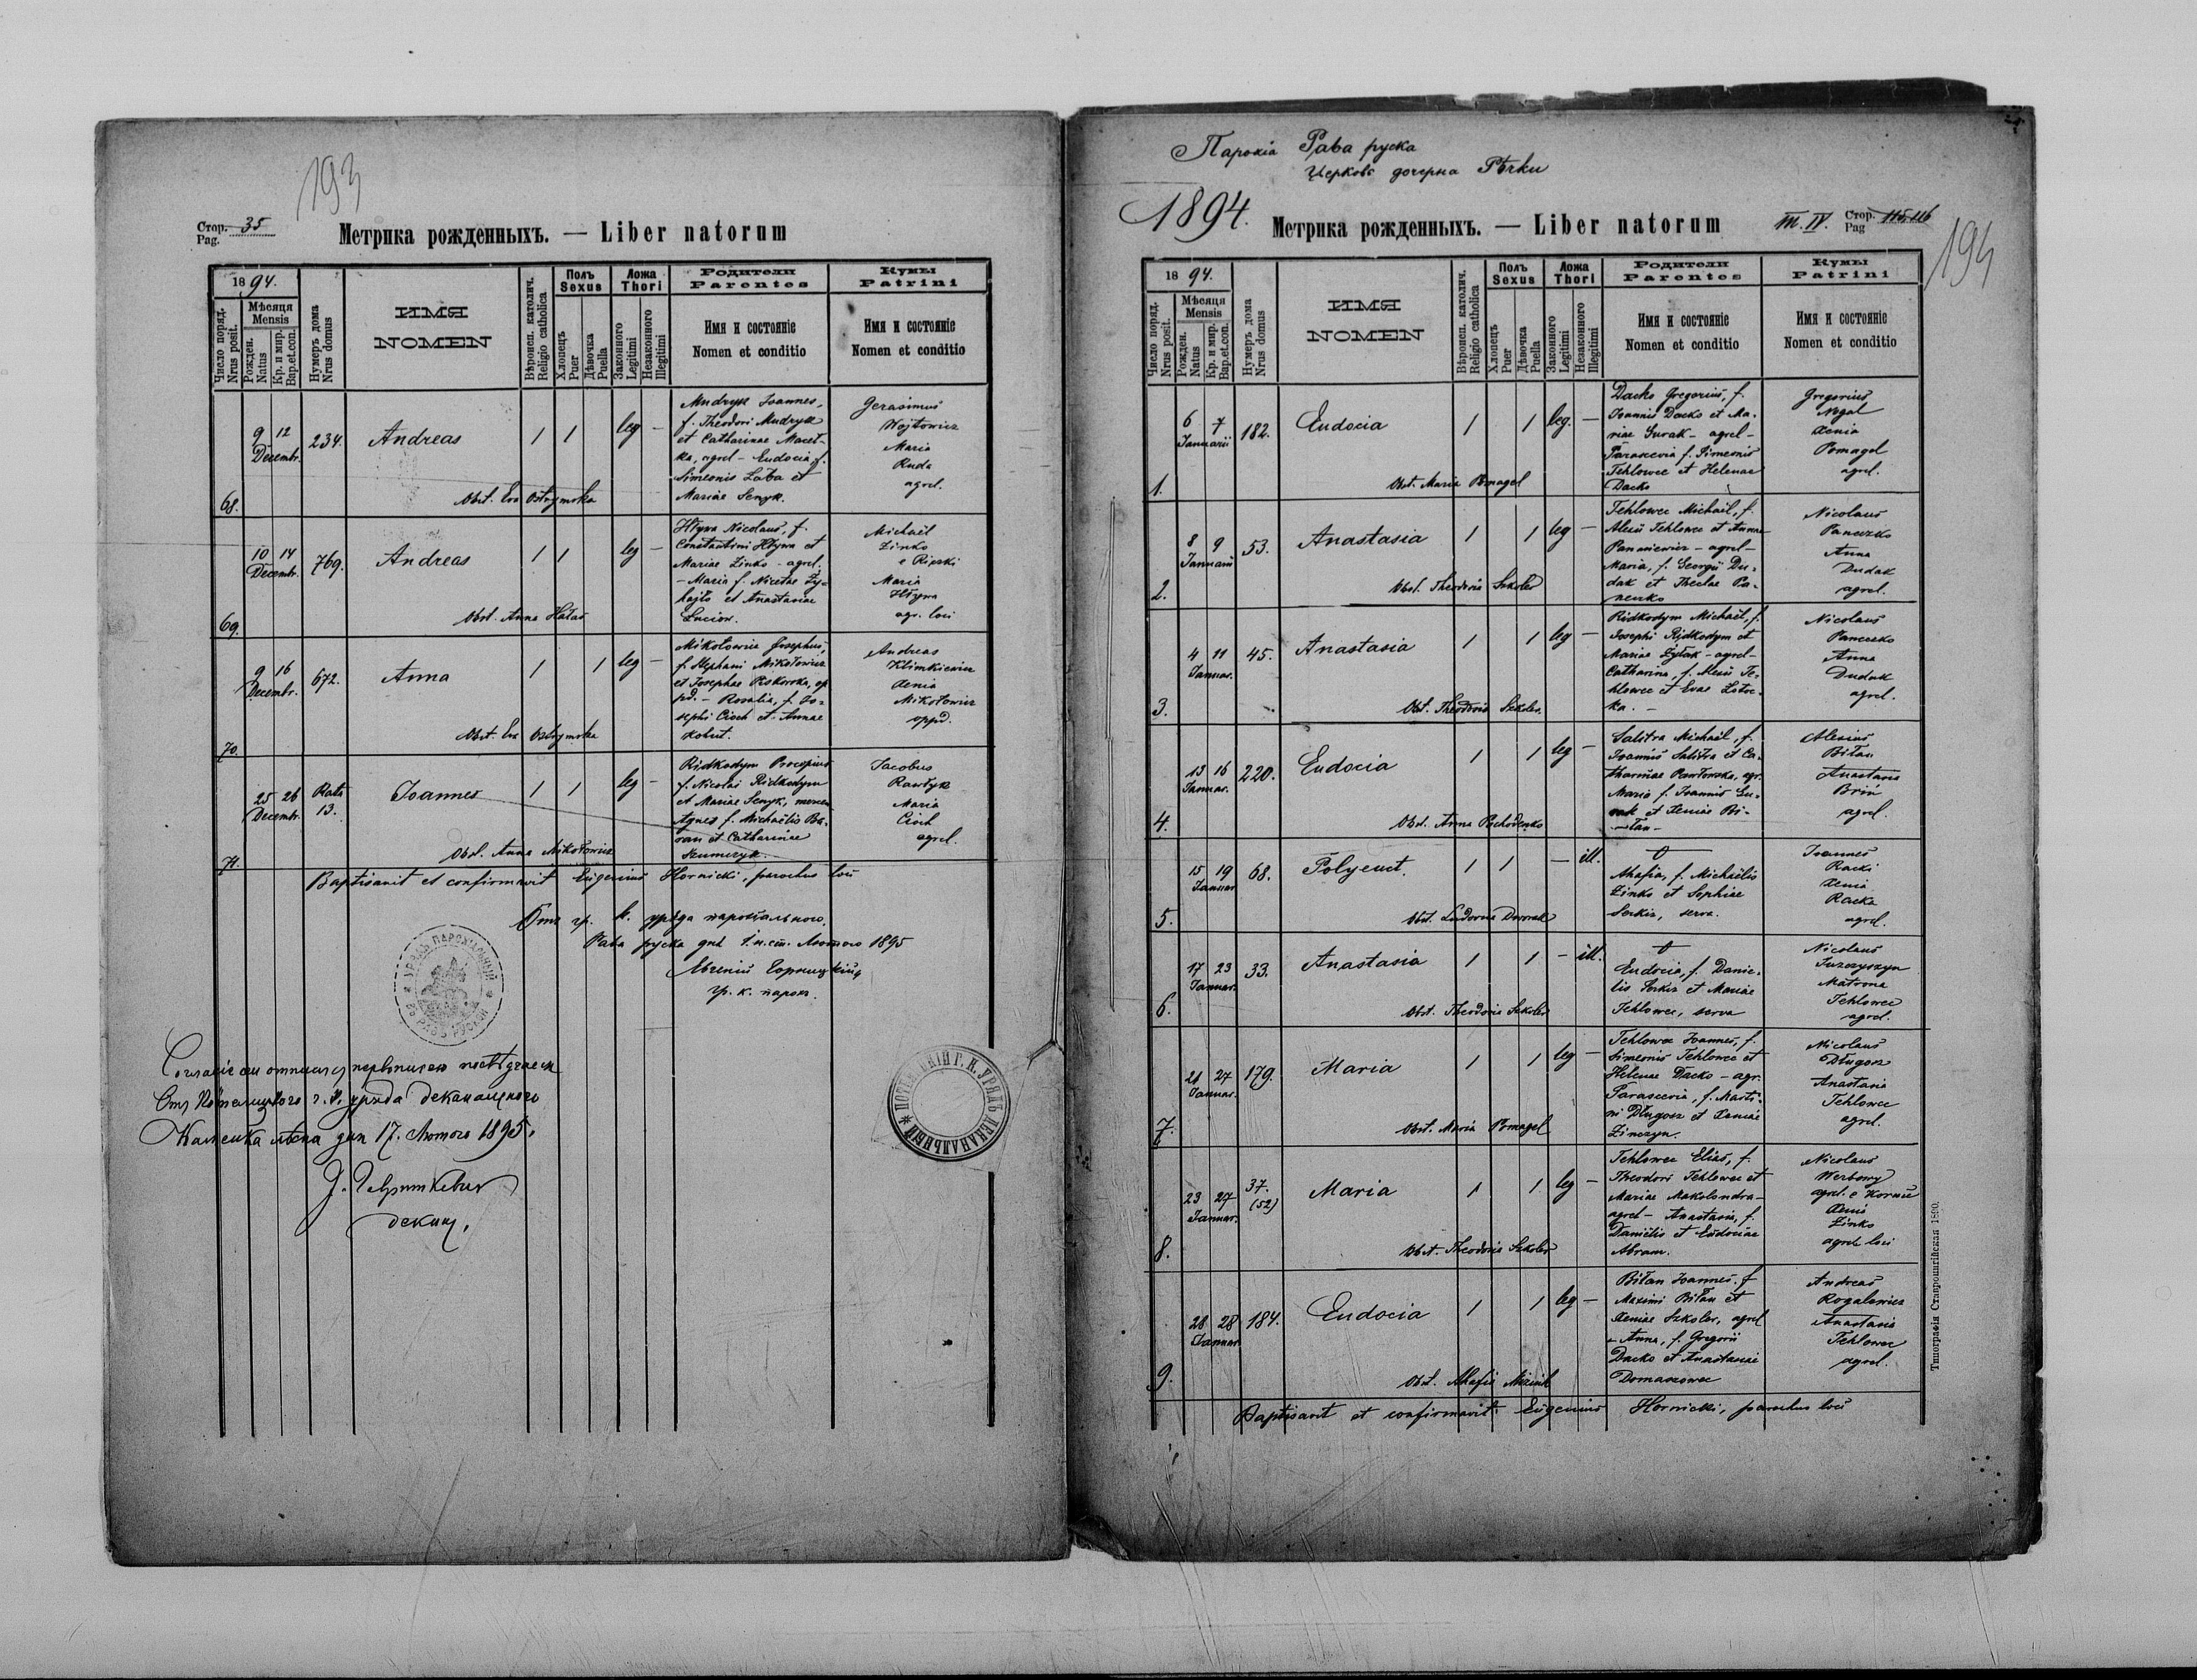 193
Стор. 35
Pag.
Метрика рожденныхъ. — Liber natorum
1894.
Число поряд.
Nrus posit.
Мѣсяця
Mensis
Рожден.
Natus
Кр. и мир.
Bap.et.con.
Нумеръ дома
Nrus domus
ИМЯ
NOMEN
Вѣроисп. католич.
Religio catholica
Полъ
Sexus
Хлопецъ
Puer
Дѣвочка
Puella
Ложа
Thori
Законного
Legitimi
Незаконного
Illegitimi
Родители
Parentes
Имя и состояніе
Nomen et conditio
Кумы
Patrini
Имя и состояніе
Nomen et conditio
68.
9 12
Decembr.
234.
Andreas
1 1 leg —
Obst. Eva Ostrymska
Mudryk Joannes,
f. Theodori Mudryk
et Catharinae Macet-
ka, agrel – Eudocia f.
Simeonis Łaba et
Mariae Senyk.
Gerasimus
Wojtowicz
Maria
Ruda
agrel.
69.
10 14
Decembr.
769.
Andreas
1 1 leg —
Obst. Anna Hałas
Hływa Nicolaus, f.
Constantini Hływa et
Mariae Zinko – agrel.
– Maria f. Nicetae
et Anastasiae
Michael
Zinko
e Rieczki
Maria
agr. loci
70.
9 16
Decembr.
672.
Anna
1 1 leg —
Obst. Eva Ostrymska
Mikołowicz Josephus,
f. Stephani Mikołowicz
et Josephae
– Rosalia, f. Jo-
sephi Cioch et Annae
Kohut.
Andreas
Klimkiewicz
Xenia
Mikołowicz
oppid.
71.
25 26
Decembr.
Rata
13.
Joannes
1 1 leg —
Obst. Anna Mikołowicz
Ridkodym Procopius
f. Nicolai Ridkodym
et Mariae Senyk,
Agnes f. Michaelis Ba-
ran et Catharinae
Szumczyk.
Jacobus
Rawłyk
Maria
Cioch
agrel.
Baptisavit et confirmavit Eugenius Hornicki, parochus loci
Отъ гр. к. уряда парохіального.
Рава руска дня 1. н.ст. Лютого 1895
Евгеній Горницкій
гр. к. парох.
УРЯДЪ ПАРОХІАЛЬНЫЙ
ВЪ РАВѢ РУСКОЙ
дня 17. Лютого 1895.
декан.
Парохія Рава руска
Церковь дочерна Рѣчки
1894.
Метрика рожденныхъ. — Liber natorum
III. IV. Стор. 115, 116
Pag
194
1894.
Число поряд.
Nrus posit.
Мѣсяця
Mensis
Рожден.
Natus
Кр. и мир.
Bap.et.con.
Нумеръ дома
Nrus domus
ИМЯ
NOMEN
Вѣроисп. католич.
Religio catholica
Полъ
Sexus
Хлопецъ
Puer
Дѣвочка
Puella
Ложа
Thori
Законного
Legitimi
Незаконного
Illegitimi
Родители
Parentes
Имя и состояніе
Nomen et conditio
Кумы
Patrini
Имя и состояніе
Nomen et conditio
1.
6 7
Januarii
182.
Eudocia
1 1 leg. —
Obst. Maria Pomagel
Dacko Gregorius, f.
Joannis Dacko et Ma-
riae Surak – agrel –
Parascevia f. Simeonis
Tehlowec et Helenae
Dacko
Gregorius
Nogal
Xenia
Pomagel
agrel.
2.
8 9
Januarii
53.
Anastasia
1 1 leg —
Obst. Theodosia Szkoler
Tehlowec Michael, f.
Alexii Tehlowec et Annae
Pananiewicz – agrel –
Maria, f. Georgii Du-
dak et Theclae Pa-
neczko
Nicolaus
Paneczko
Anna
Dudak
agrel.
3.
4 11
Januar.
45.
Anastasia
1 1 leg —
Obst. Theodosia Szkoler.
Ridkodym Michael, f.
Josephi Ridkodym et
Mariae Żyłak – agrel –
Catharina, f. Alexii Te-
hlowec et Evae
Nicolaus
Paneczko
Anna
Dudak
agrel.
4.
13 16
Januar.
220.
Eudocia
1 1 leg —
Obst. Anna Pochodenko
Salitra Michael, f.
Joannis Salitra et Ca-
tharinae Pawłowska, agr.
Maria f. Joannis Su-
rak et Xeniae Bi-
-łan –
Alexius
Biłan
Anastasia
Brin
agrel.
5.
15 19
Januar
68.
Polyeuct.
1 1 — ill.
Obst. Ludovica Dworak
Ahafia, f. Michaelis
Zinko et Sophiae
Serkiz, serva.
Joannes
Racki
Xenia
Racka
agrel.
6.
17 23
Januar.
33.
Anastasia
1 1 – ill.
Obst. Theodosia Szkoler
Eudocia, f. Danie-
lis Serkiz et Mariae
Tehlowec, serva
Nicolaus
Juzczyszyn
Matrona
Tehlowec
agrel.
7.
21 27
Januar.
179.
Maria
1 1 leg —
Obst. Maria Pomagel
Tehlowec Joannes, f.
Simeonis Tehlowec et
Helenae Dacko – agr.
Parascevia, f. Marti-
ni Długosz et Xeniae
Zinczyn.
Nicolaus
Długosz
Anastasia
Tehlowec
agrel.
8.
23 27
Januar.
37.
(52)
Maria
1 1 leg —
Obst. Theodosia Szkoler
Tehlowec Elias, f.
Theodori Tehlowec et
Mariae Makolondra –
agrel – Anastasia, f.
Danielis et Eudociae
Abram.
Nicolaus
Werbowy
agrel. e Kornie
Xenia
Zinko
agrel. loci
9.
28 28
Januar
184.
Eudocia
1 1 leg —
Obst. Ahafia
Biłan Joannes. f
Maximi Biłan et
Xeniae Szkoler, agrel
– Anna, f. Gregorii
Dacko et Anastasiae
Domaszowec
Andreas
Rogalewicz
Anastasia
Tehlowec
agrel.
Baptisavit et confirmavit Eugenius Hornicki, parochus loci
Типографія Ставропигійская 1890.